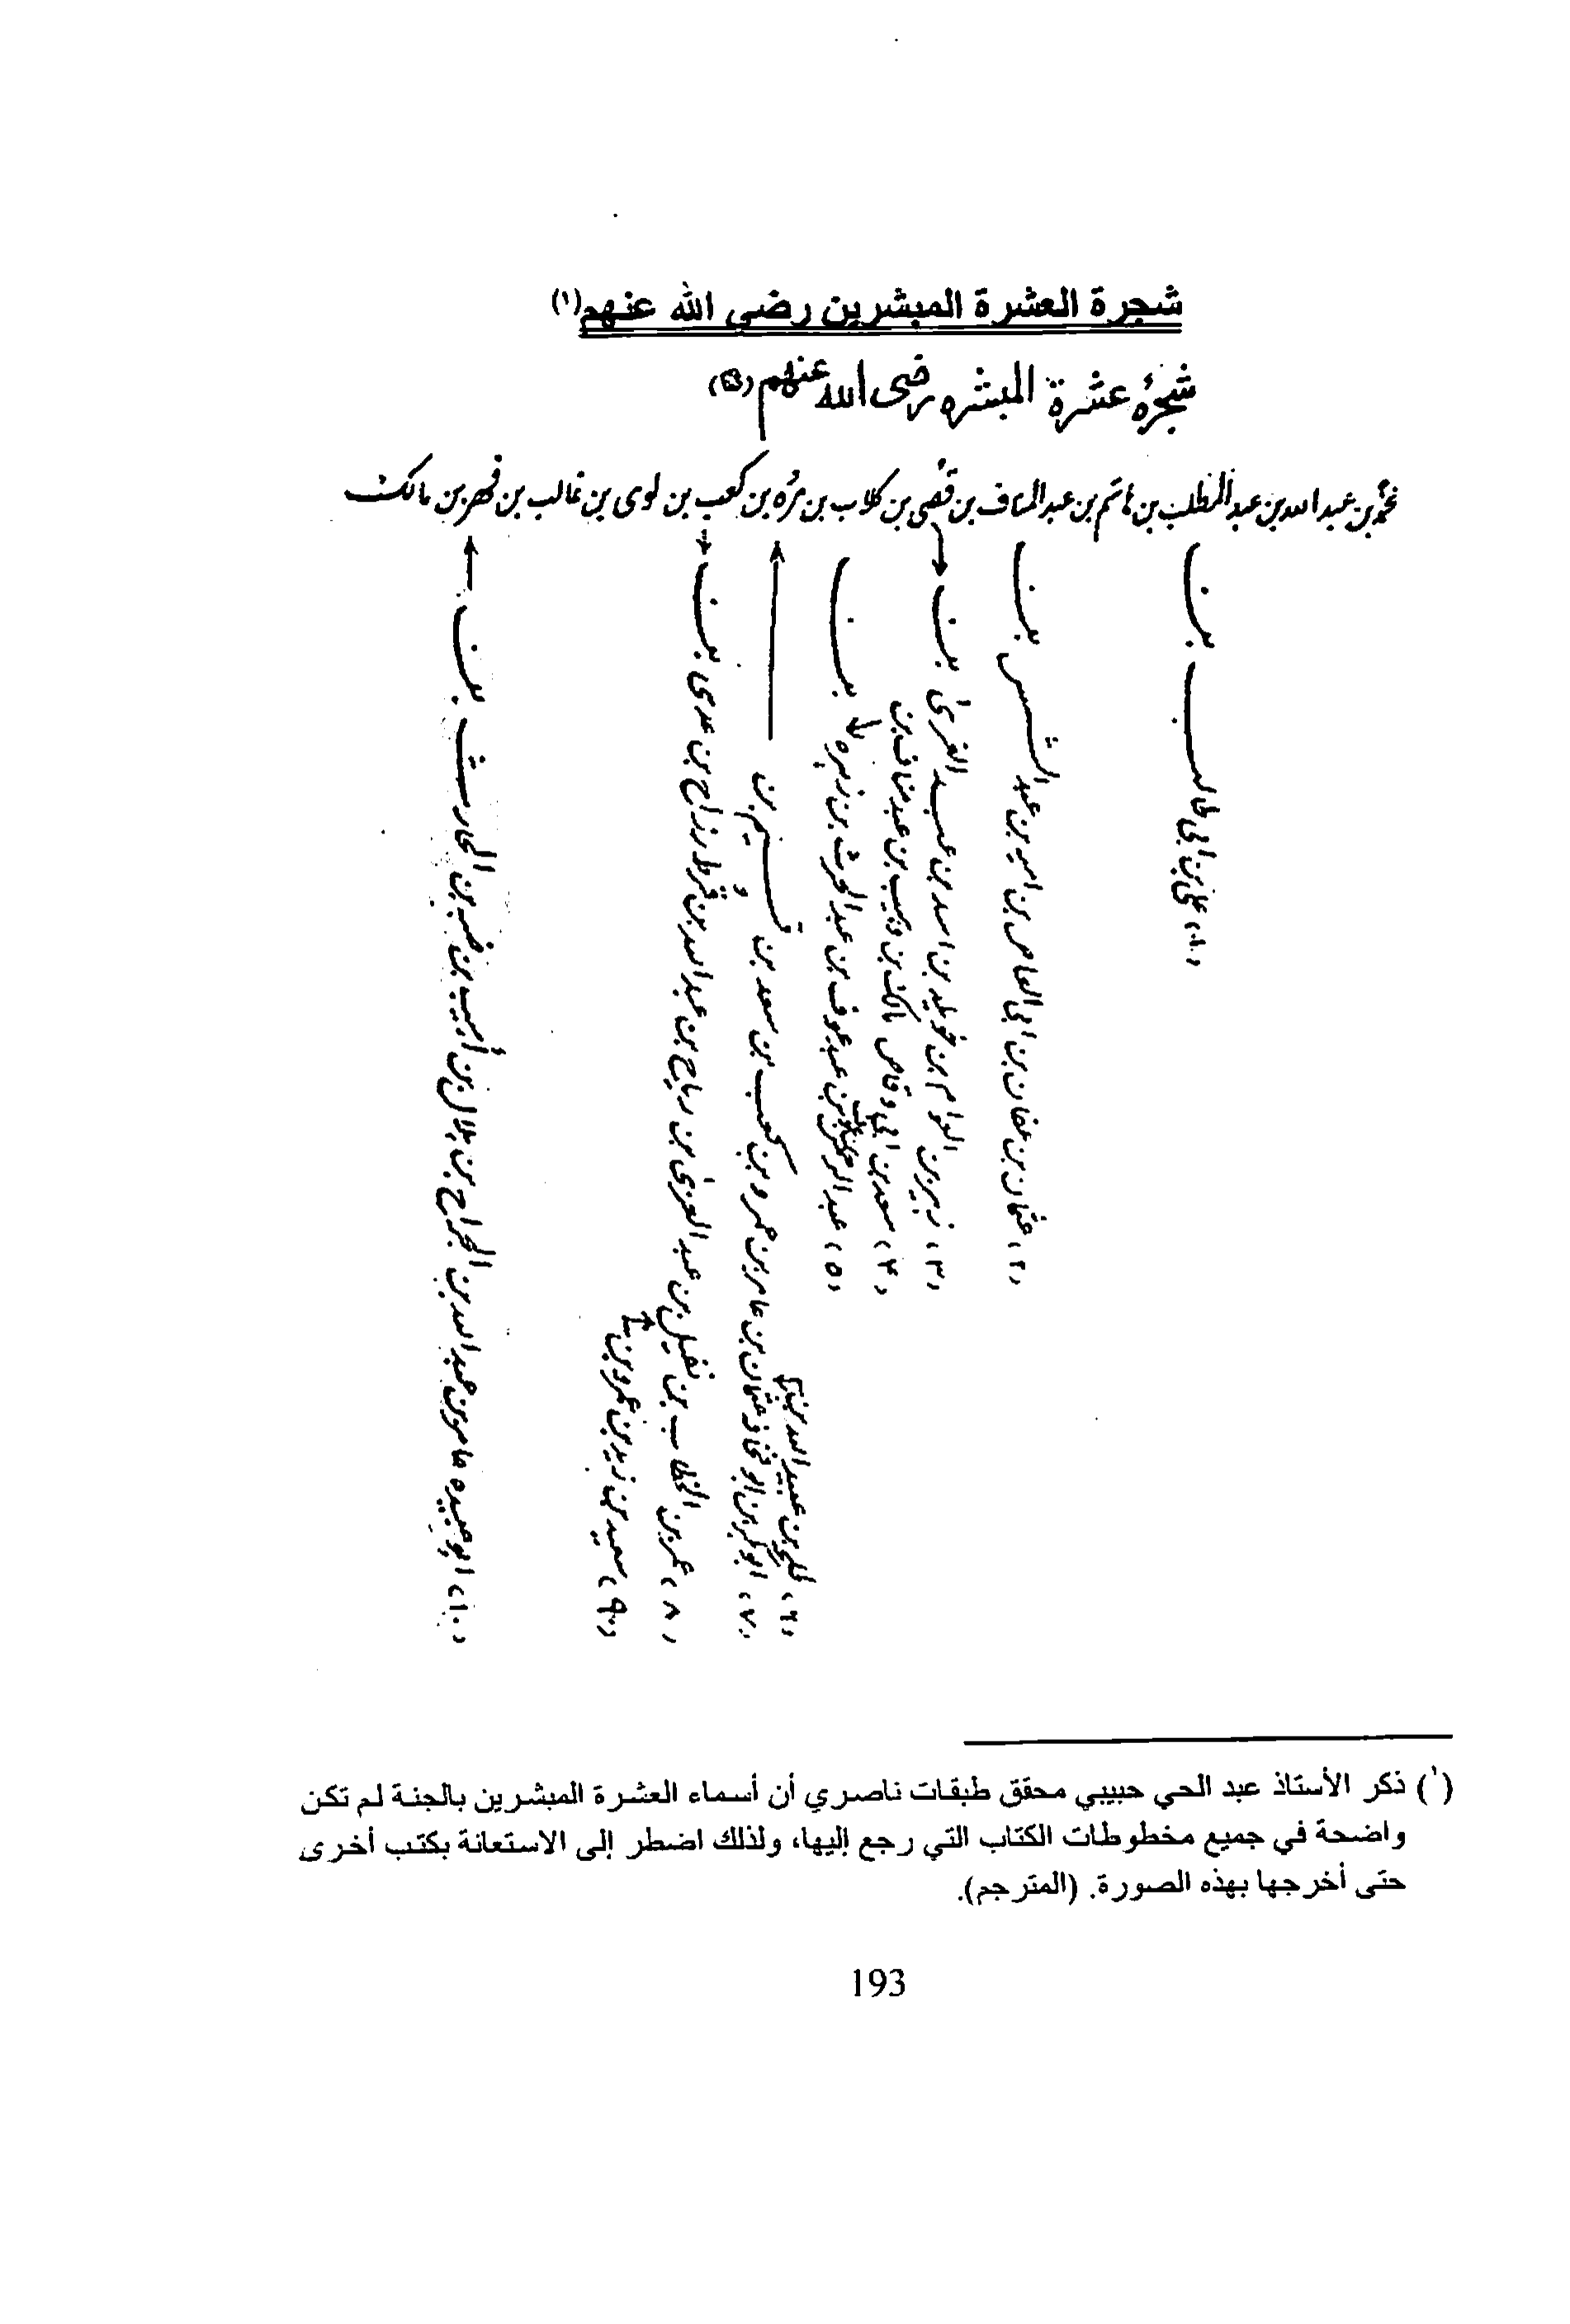 شجرة العشرة المبشرين رضي الله عنهم(١)
شجرۀ عشرة المبشره رضی الله عنهم
محمد بن عبدالله بن عبدالمطلب بن هاشم بن عبدالمناف بن قصی بن کلاب بن مُرّه بن کعب بن لوی بن غالب بن فهر بن مالک
علی بن ابی طالب بن
(۲) عثمان بن عفان بن ابی العاص بن امیه بن عبدالشمس بن
(۳) زبیر بن العوام بن خویلد بن اسد بن عبد العزی بن
(۴) سعد بن ابی وقاص مالک بن وهیب بن عبد مناف بن
(۵) عبدالرحمن بن عوف بن عبد عوف بن عبدالحرث بن زهره بن
(٦) طلحه بن عبیدالله بن
(۷) ابوبکر بن ابو قحافه عثمان بن عامر بن عمرو بن کعب بن سعد بن تیم بن
(۸) عمر بن الخطاب بن نفیل بن عبد العزی بن ریاح بن عبدالله بن قرط رزاح بن عدی بن
(۹) سعید بن زید بن عمرو بن
(۱۰) ابو عبیده عامر بن عبدالله بن الجراح بن هلال بن أهیب بن ضبه بن الحارث بن
(١) ذكر الأستاذ عبد الحي حبيبي محقق طبقات ناصري أن أسماء العشرة المبشرين بالجنة لم تكن
واضحة في جميع مخطوطات الكتاب التي رجع إليها، ولذلك اضطر إلى الاستعانة بكتب أخرى
حتى أخرجها بهذه الصورة. (المترجم).
193